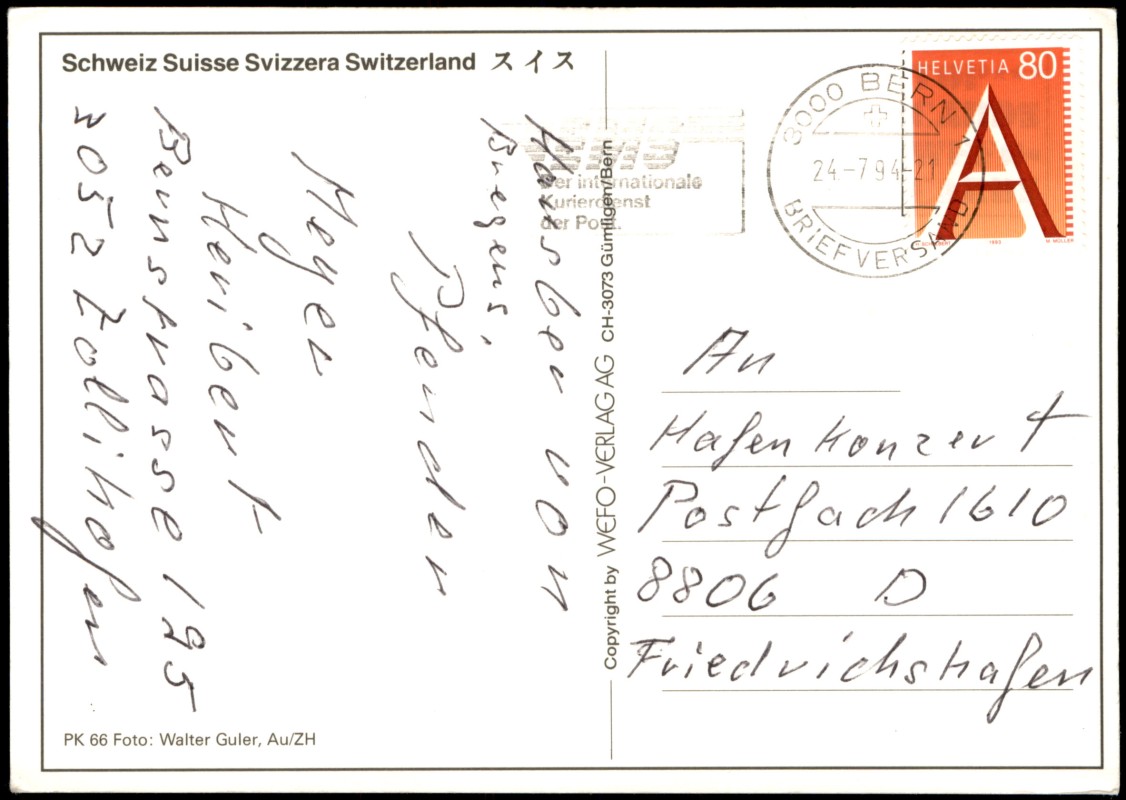 Schweiz Suisse Svizzera Switzerland スイス
Hausber von
Bregens,
Pfender
Meyer
Heribert
Bernstrasse
3052 Zollikofen
PK 66 Foto: Walter Guler, Au/ZH
Copyright by WEFO-VERLAG AG CH-3073 Gümligen/Bern
EMS
Der internationale
Kurierdienst
der Post.
3000 BERN 1
24.-7.94-21
BRIEFVERSAND
HELVETIA 80
1993
An
Hafenkonzert
Postfach 1610
8806 D
Friedrichshafen